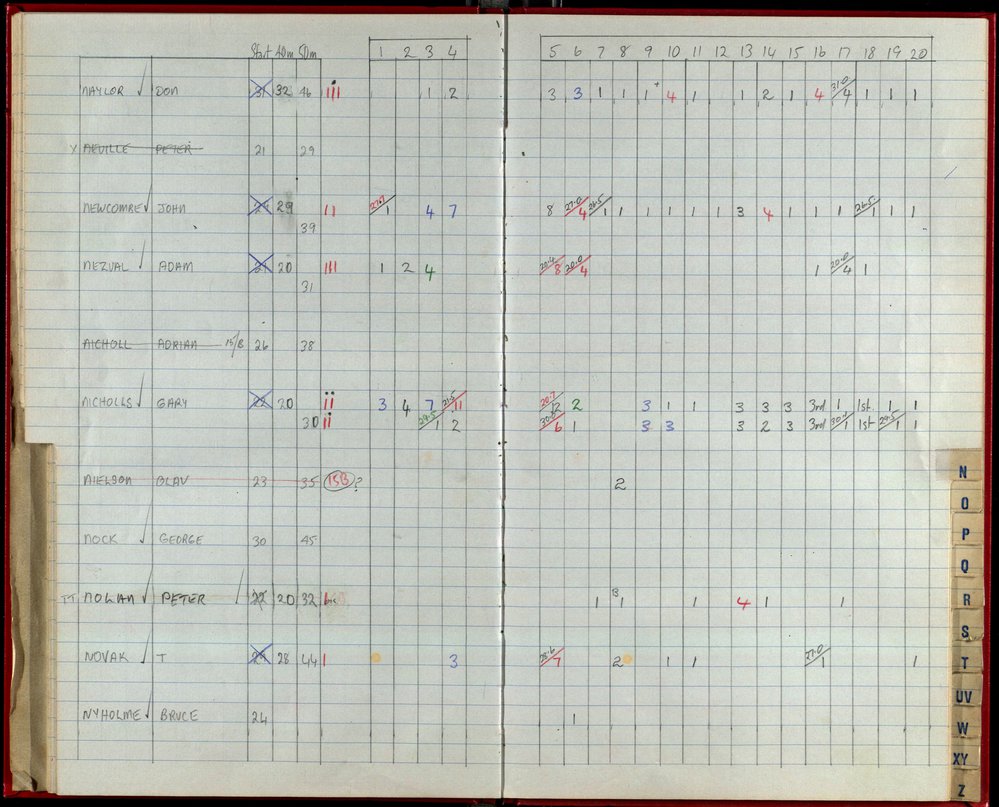 Start 40m 50m 1 2 3 4 5 6 7 8 9 10 11 12 13 14 15 16 17 18 19 20
NAYLOR DON 31 32 46 III 1 2 3 3 1 1 1 + 4 1 1 2 1 4 31.0 4 1 1 1
X NEVILLE PETER 21 29
NEWCOMBE JOHN 29 29 II 27.7 1 4 7 8 27.0 4 26.5 1 1 1 1 1 1 3 4 1 1 1 26.5 1 1 1
39
NEZVAL ADAM 21 20 III 1 2 4 20.4 8 20.0 4 1 20.0 4 1
31
NICHOLL ADRIAN 15/8 26 38
NICHOLLS GARY 22 20 II 3 4 7 21.5 11 20.7 12 2 3 1 1 3 3 3 3rd 1 1st 1 1
30 II 29.5 1 2 30.0 6 1 3 3 3 2 3 3rd 30.4 1 1st 29.5 1 1
NIELSON OLAV 23 35 15B ? 2
NOCK GEORGE 30 45
TT NOLAN PETER 22 20 32 1 B 1 1 4 1 1
NOVAK T 29 28 44 I 3 28.6 7 2 1 1 27.0 1 1
NYHOLME BRUCE 24 1
N
O
P
Q
R
S
T
UV
W
XY
Z